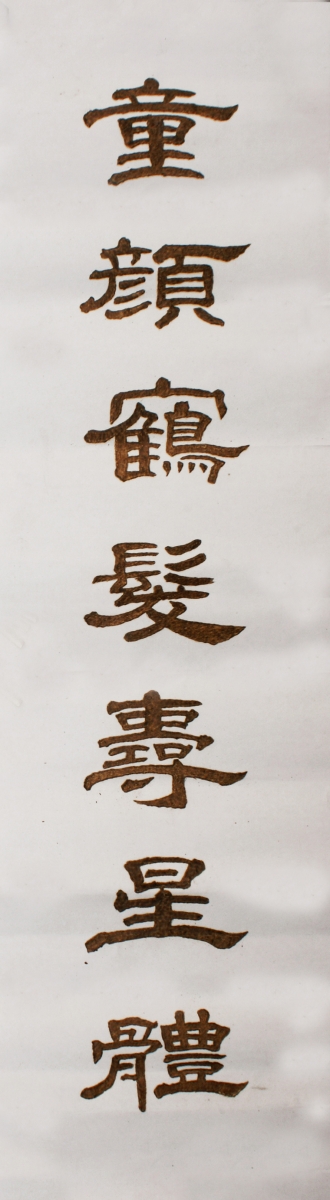 童顏鶴髮壽星體